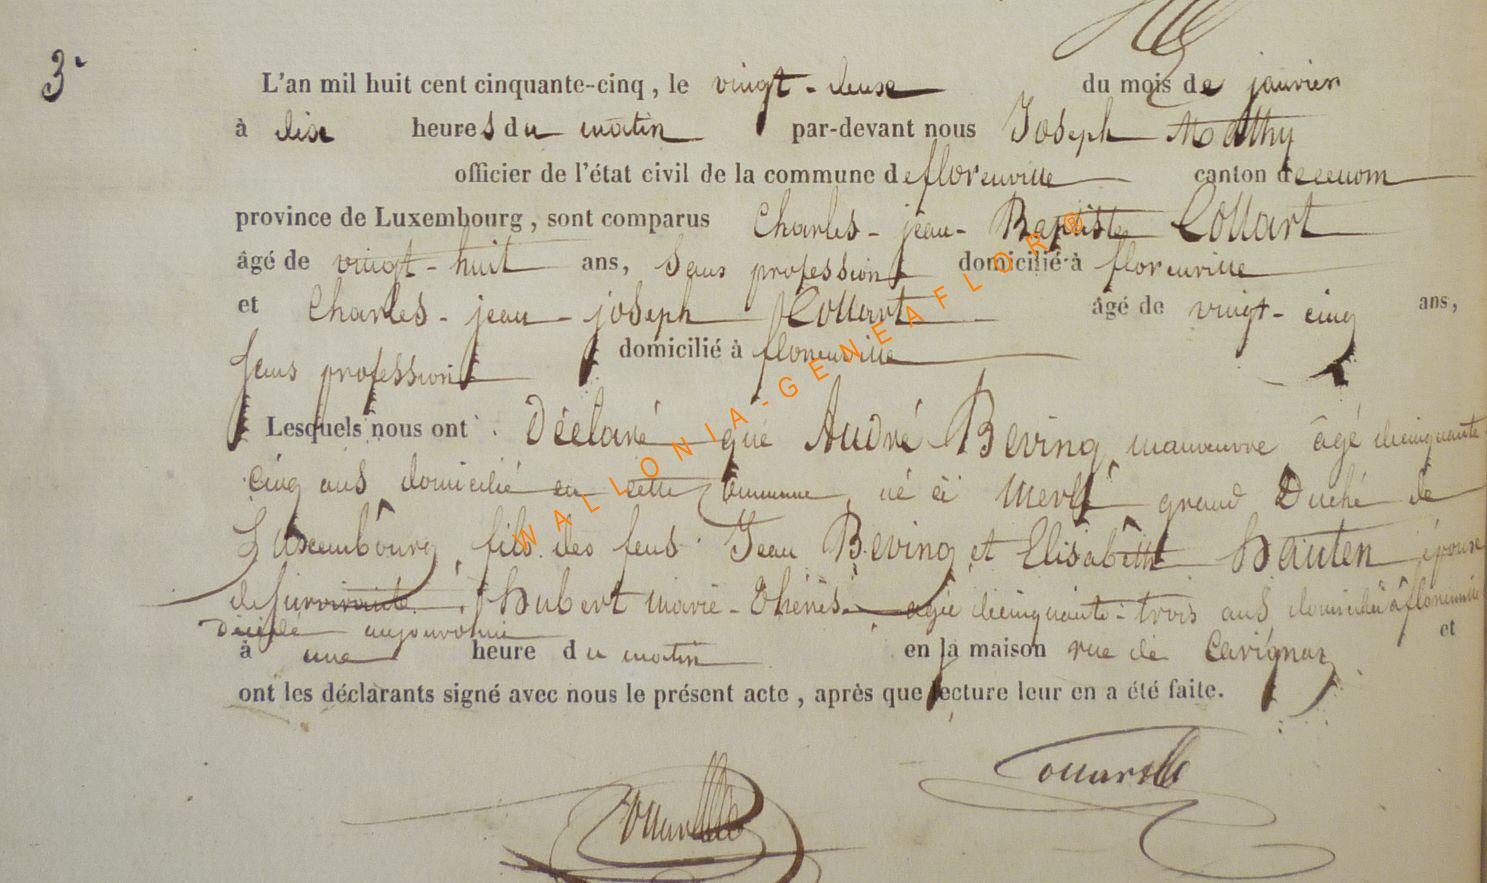 3.
L'an mil huit cent cinquante-cinq, le vingt-deux du mois de janvier
à dix heures du matin par-devant nous Joseph Mathy
officier de l'état civil de la commune de florenville canton
province de Luxembourg, sont comparus Charles-jean-Baptiste Collart
âgé de vingt-huit ans, Sans profession domicilié à florenville
et Charles-jean-joseph Collart âgé de vingt-cinq ans,
Sans profession domicilié à florenville
Lesquels nous ont Déclaré que André Beving, manœuvre âgé decinquante-
cinq ans domicilié en cette Commune, né à Mersch grand Duché de
Luxembourg, fils des feus Jean Beving et Elisabeth Hauten époux
de survivante hubert marie-Thérèse agée decinquante-trois ans domiciliée à florenville
Décédé aujourd'hui
à une heure du matin en la maison rue de Carignan et
ont les déclarants signé avec nous le présent acte, après que lecture leur en a été faite.
WALLONIA-GENEAFLOR®